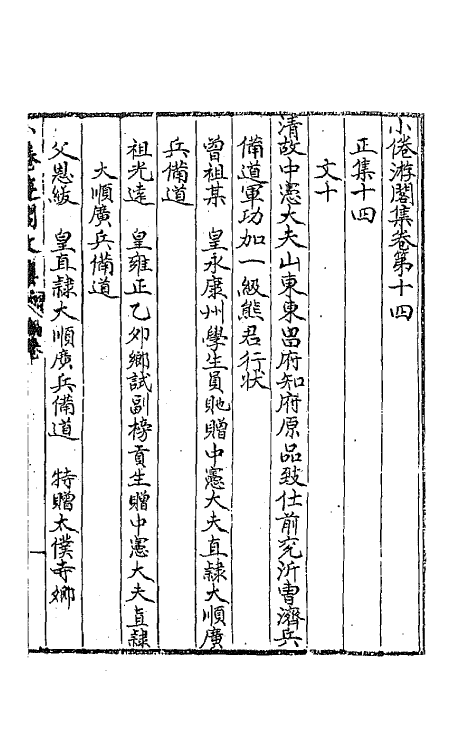 小倦游閣集卷第十四
正集十四
文十
清故中憲大夫山東東昌府知府原品致仕前兗沂曹濟兵
備道軍功加一級熊君行狀
曾祖某　皇永康州學生員貤贈中憲大夫直隸大順廣
兵備道
祖光逵　皇雍正乙卯鄉試副榜貢生贈中憲大夫直隸
大順廣兵備道
父恩紱　皇直隸大順廣兵備道　特贈太僕寺卿